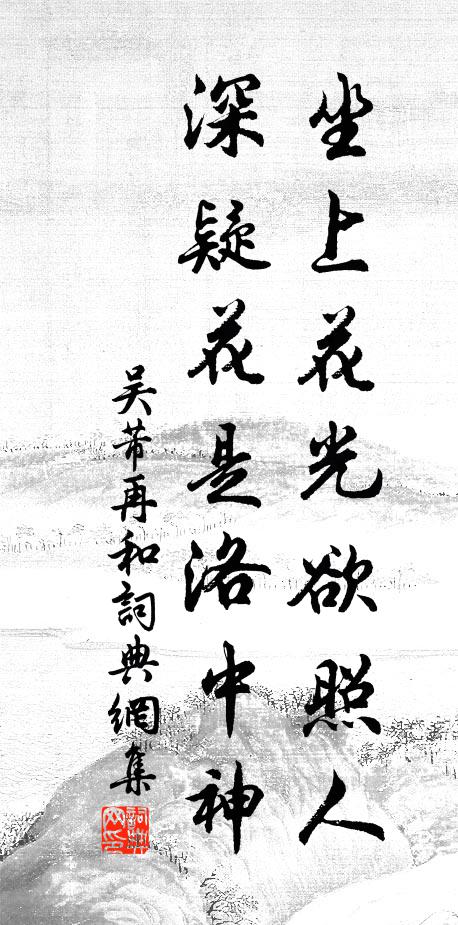 坐上花光欲照人
深疑花是洛中神
吴芾再和詞典網集
詞典网印